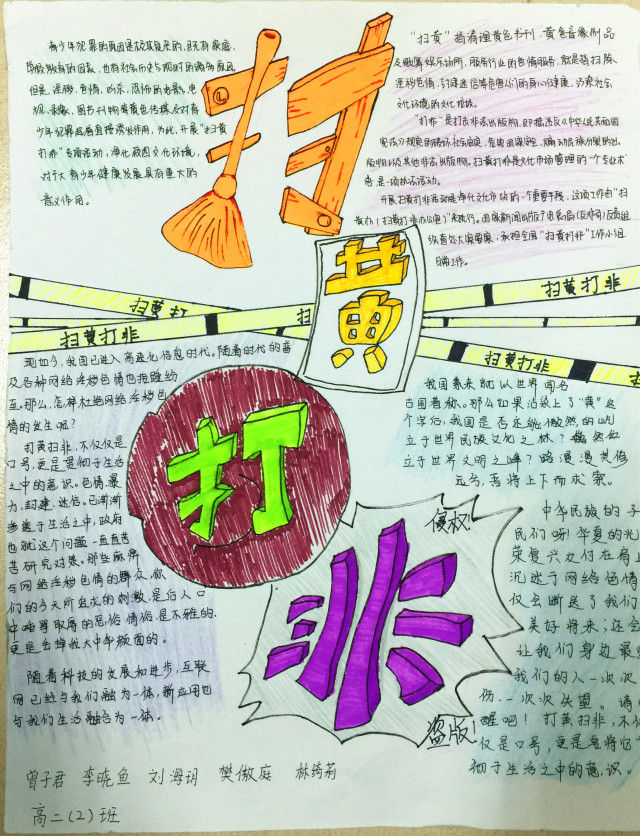 青少年犯罪的原因是极其复杂的,既有家庭、
学校教育的因素,也有社会历史与现时的消极原因
但是,淫秽、色情、凶杀、恐怖的电影、电
视、录像、图书刊物等黄色传媒,对青
少年犯罪起着直接诱发作用,为此,开展“扫黄
打非”专项活动,净化校园文化环境,
对于青少年健康发展具有重大的
意义作用。
扫
“扫黄”指清理黄色书刊、黄色音像制品
及歌舞娱乐场所、服务行业的色情服务,就是猫扫除
淫秽色情、封建迷信等危害人们的身心健康、污染社会
文化环境的文化垃圾。
“打非”是打击非法出版物,即指违反《中华人民共和国
宪法》规定的破坏社会安定、危害国家安全、煽动民族分裂的出
版物以及其他非法出版物。扫黄打非是文化市场管理的一个专业术
语,是一项执法活动。
开展扫黄打非活动是净化文化市场的一个重要手段,这项工作由“扫
黄办(扫黄打非办公室)”来执行。国家新闻出版广电总局(反非司)反非组
织各处大案要案,承担全国“扫黄打非”工作小组
日常工作。
黄
扫黄打非
扫黄打非
扫黄打非
扫黄打非
扫
现如今,我国已进入高速化信息时代。随着时代的普
及各种网络淫秽色情也接踵纷
至。那么,怎样杜绝网络淫秽色
情的发生呢?
打黄扫非,不仅仅是
口号,更是贯彻于生活
之中的意识。色情、暴
力、封建、迷信。已渐渐
渗透于生活之中,政府
也就这个问题一直艰苦
苦研究对策。那些麻痹
与网络淫秽色情的群众,你
们的今天所追求的刺激,是后人口
中唾辱取辱的恶俗情俗是不雅的,
更是丢掉我大中华颜面的。
随着科技的发展和进步,互联
网已经与我们融为一体,新应用也
与我们生活融合为一体。
打
我国泰来就以世界闻名
古国着称。那么如果沾染上了“黄”这
个字后,我国是否还能傲然的屹
立于世界民族文化之林?巍然屹
立于世界文明之峰?路漫漫其修
远兮,吾将上下而求索。
非
侵权!
盗版!
中华民族的子
民们呀!华夏的光
荣复兴交付在肩上
沉迷于网络色情
仅会断送了我们
美好将来;还会
让我们身边最
我们的人一次次
伤、一次次失望。请
醒吧!打黄扫非,不
仅是口号,更是要将它
彻于生活之中的意识。
曾子君 李晓鱼 刘海玥 樊傲庭 林绮莉
高二(2)班